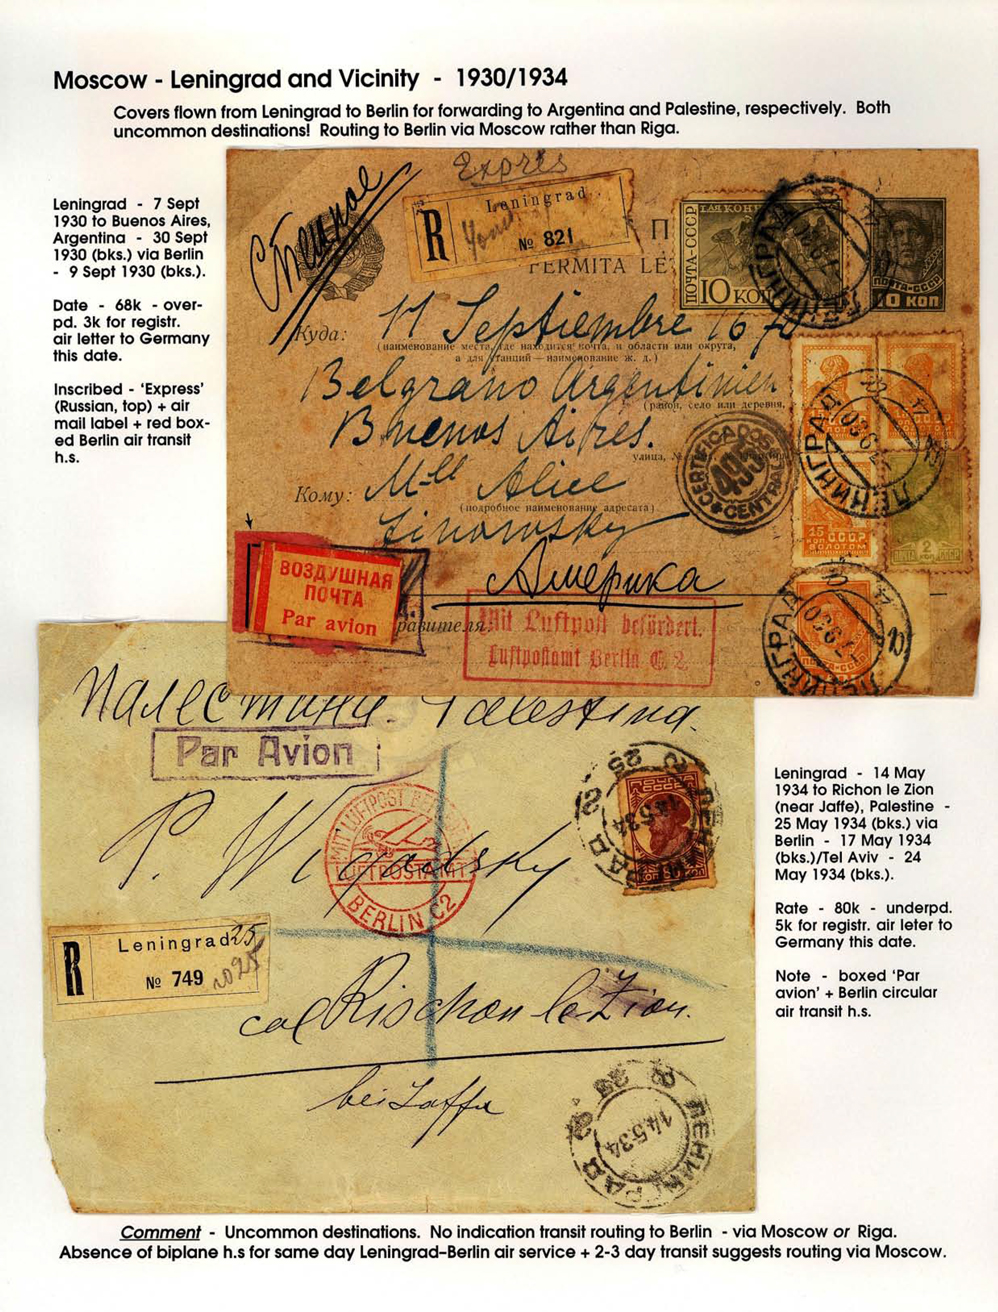 Moscow - Leningrad and Vicinity - 1930/1934
Covers flown from Leningrad to Berlin for forwarding to Argentina and Palestine, respectively. Both
uncommon destinations! Routing to Berlin via Moscow rather than Riga.
Leningrad - 7 Sept
1930 to Buenos Aires,
Argentina - 30 Sept
1930 (bks.) via Berlin
- 9 Sept 1930 (bks.).
Date - 68k - over-
pd. 3k for registr.
air letter to Germany
this date.
Inscribed - 'Express'
(Russian, top) + air
mail label + red box-
ed Berlin air transit
h.s.
Спешное
Expres
R
Leningrad
№ 821
PERMITA LE
ПОЧТА-СССР
10 КОП
ПОЧТА-СССР
10 КОП
ЛЕНИНГРАД
Куда:
11 Septiembre 1670
(наименование места, где находится почта, и области или округа,
а для станций — наименование ж. д.)
Belgrano Argentinien
(район, село или деревня,
Buenos Aires.
улица, №
Кому: M-ll Alice
(подробное наименование адресата)
Zinowsky
Америка
CERTIFICADOS
495
CENTRAL
ЛЕНИНГРАД
7930
15
КОП. С.С.С.Р.
ЗОЛОТОМ
2
ВОЗДУШНАЯ
ПОЧТА
Par avion
равителя:
Mit Luftpost befördert.
Luftpostamt Berlin C. 2.
ПОЧТА-СССР
ЛЕНИНГРАД
7930
Палестина. Palestina.
Par Avion
P. Wigadsky
MIT LUFTPOST BEFÖRDERT
LUFTPOSTAMT
BERLIN C2
ПОЧТА
СССР
ЛЕНИНГРАД
14.5.34
R
Leningrad 25
№ 749
col Rischon le-Zion.
bei Jaffa
ЛЕНИНГРАД
14.5.34
Leningrad - 14 May
1934 to Richon le Zion
(near Jaffe), Palestine -
25 May 1934 (bks.) via
Berlin - 17 May 1934
(bks.)/Tel Aviv - 24
May 1934 (bks.).
Rate - 80k - underpd.
5k for registr. air leter to
Germany this date.
Note - boxed 'Par
avion' + Berlin circular
air transit h.s.
Comment - Uncommon destinations. No indication transit routing to Berlin - via Moscow or Riga.
Absence of biplane h.s for same day Leningrad-Berlin air service + 2-3 day transit suggests routing via Moscow.